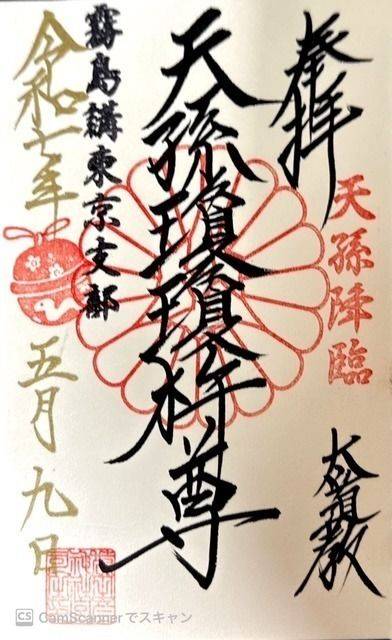 奉拝
天孫降臨
大道教
天孫瓊瓊杵尊
霧島講東京支部
令和七年
五月九日
CS CamScannerでスキャン